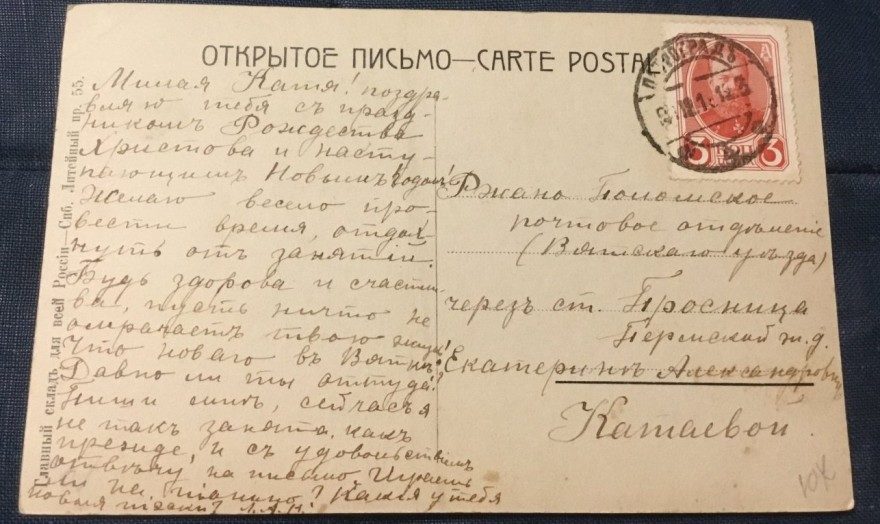 ОТКРЫТОЕ ПИСЬМО—CARTE POSTALE
Милая Катя! поздра-
вляю тебя съ празд-
никомъ Рождества
Христова и насту-
пающимъ Новымъ Годомъ!
Желаю весело про-
вести время, отдох-
нуть отъ занятій.
Будь здорова и счастли-
ва, пусть ничто не
омрачаетъ твою жизнь!
Что новаго въ Вяткѣ?
Давно ли ты оттуда?
Пиши мнѣ, сейчасъ я
не такъ занята, какъ
прежде, и съ удовольствіемъ
отвѣчу на письмо. Играешь
ли на піанино? Какія у тебя
новыя
Главный складъ для всей Россіи—Спб. Литейный пр. 55.
3 3
Ржано Поломское
почтовое отдѣленіе
(Вятскаго уѣзда)
черезъ ст. Просница
Пермской ж.д.
Екатеринѣ Александровнѣ
Катаевой
10К